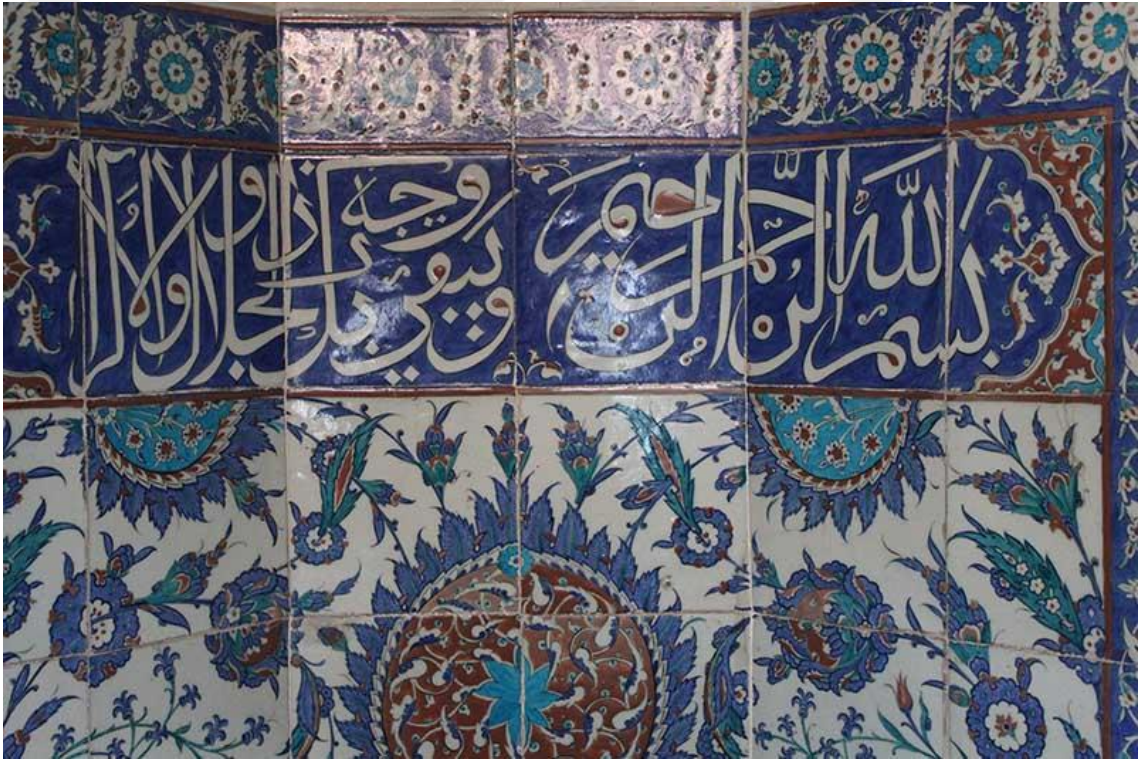 بسم الله الرحمن الرحيم ويبقي وجه ربك ذو الجلال والاكرام